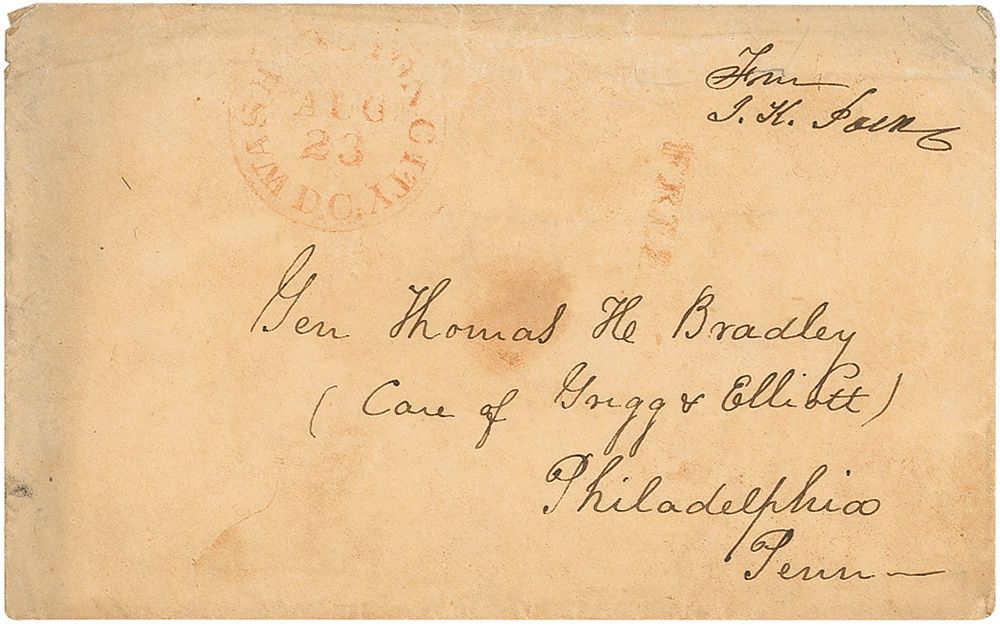 WASHINGTON CITY D.C.
AUG
23
From
J. K. Polk
FREE
Gen Thomas H Bradley
(Care of Grigg & Elliott)
Philadelphia
Penn